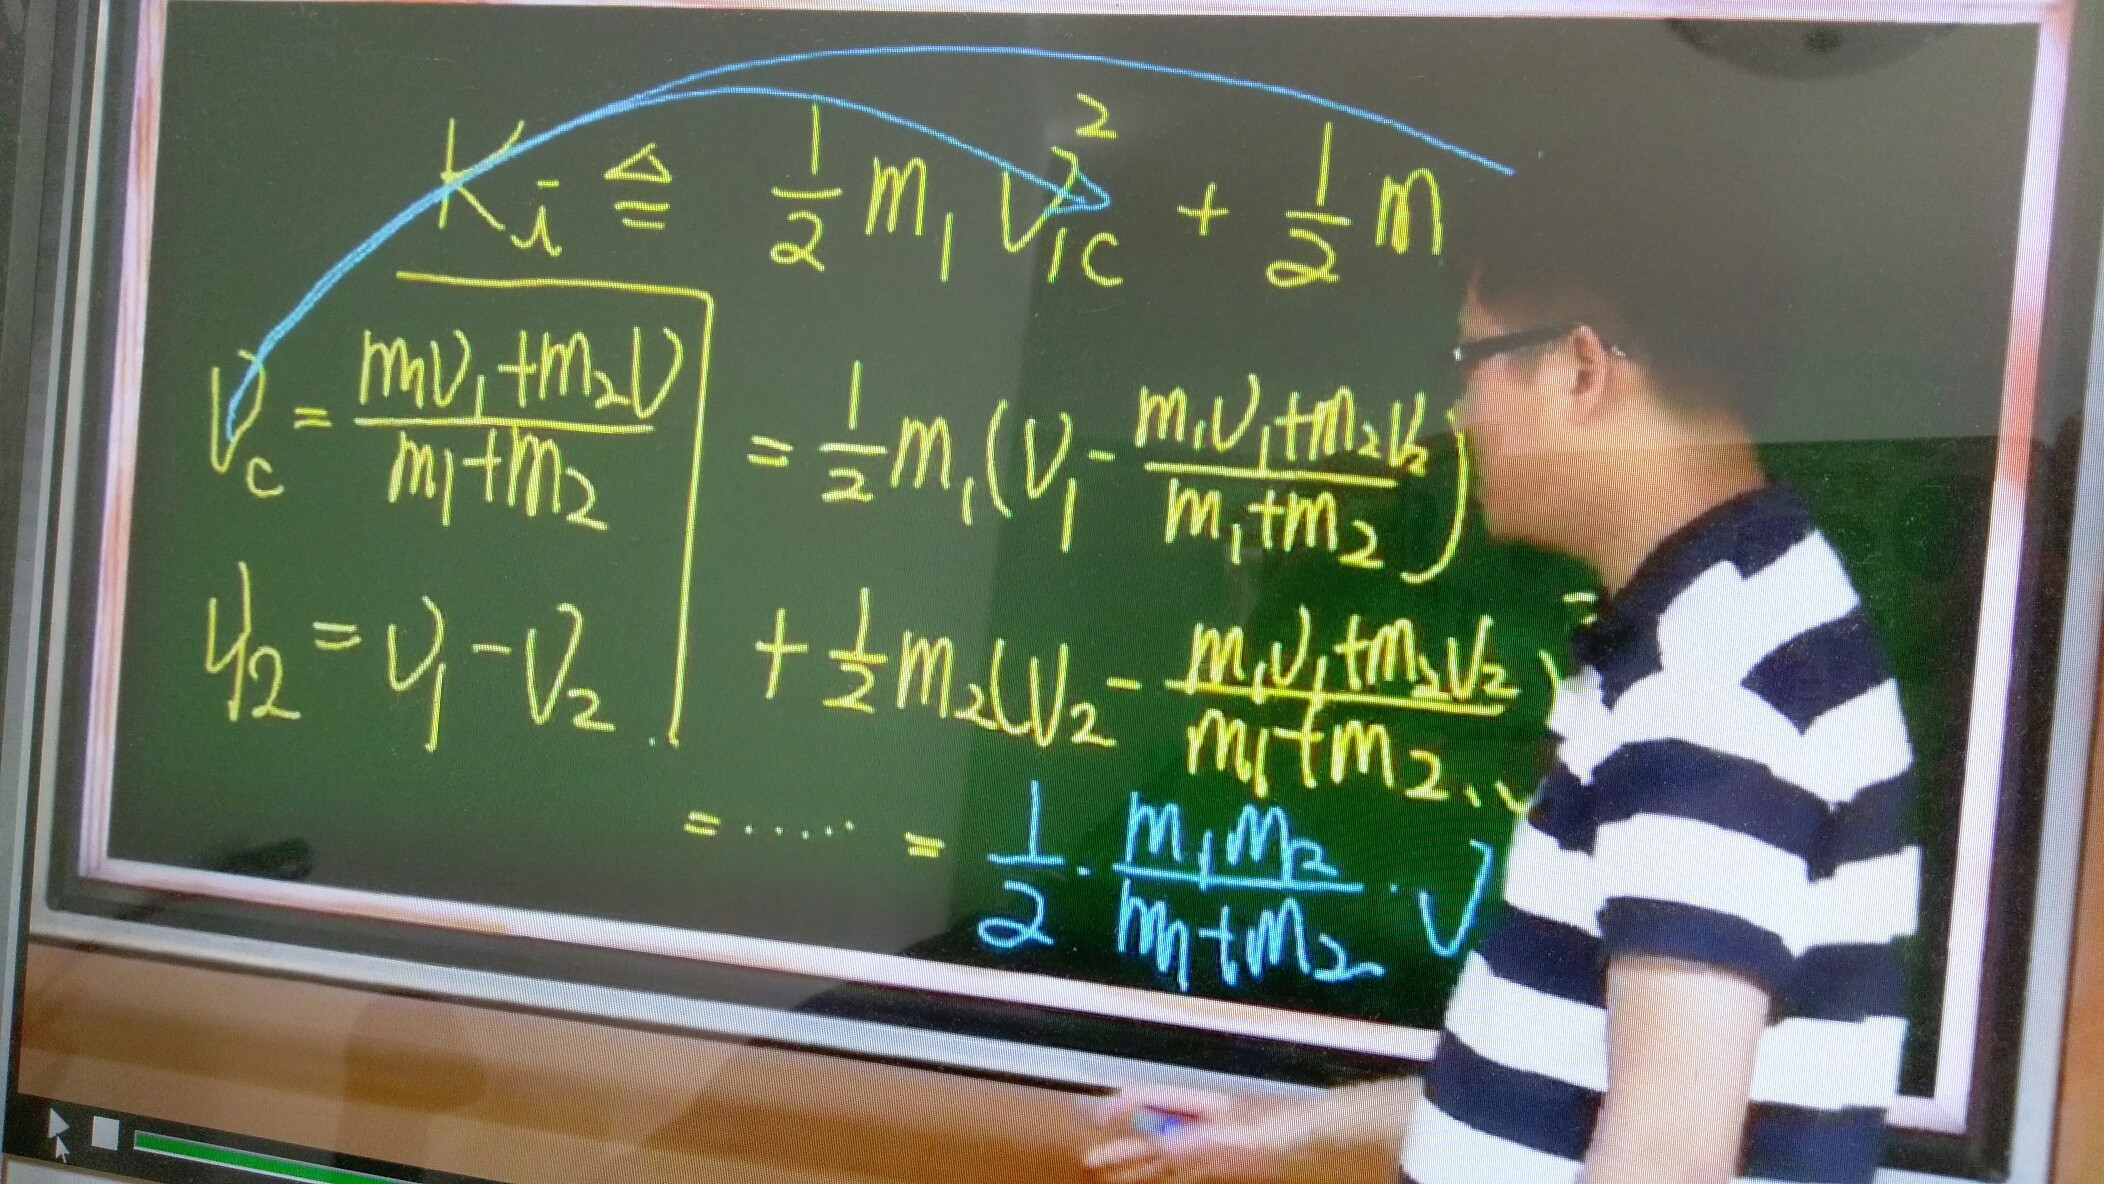 Ki ≜ 1/2 m₁ v₁c² + 1/2 m
vc = (m₁v₁+m₂v)/(m₁+m₂)
= 1/2 m₁(v₁ - (m₁v₁+m₂v₂)/(m₁+m₂))
v₁₂ = v₁ - v₂
+ 1/2 m₂(v₂ - (m₁v₁+m₂v₂)/(m₁+m₂))²
= ······ = 1/2 · (m₁m₂)/(m₁+m₂) · v